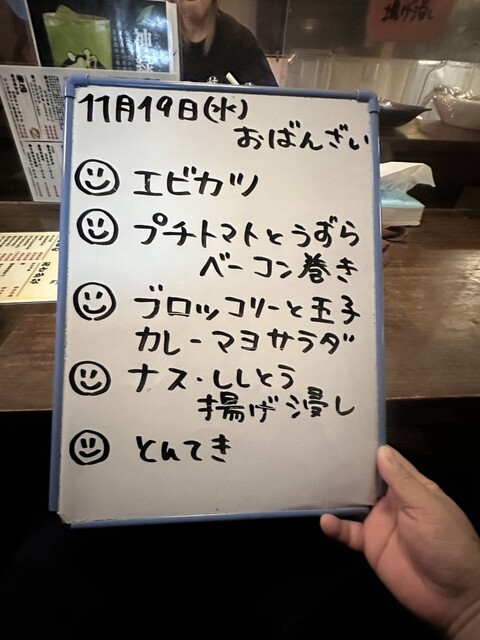 11月19日(水)
おばんざい
エビカツ
プチトマトとうずら
ベーコン巻き
ブロッコリーと玉子
カレーマヨサラダ
ナス・ししとう
揚げ浸し
とんてき
揚げ浸し